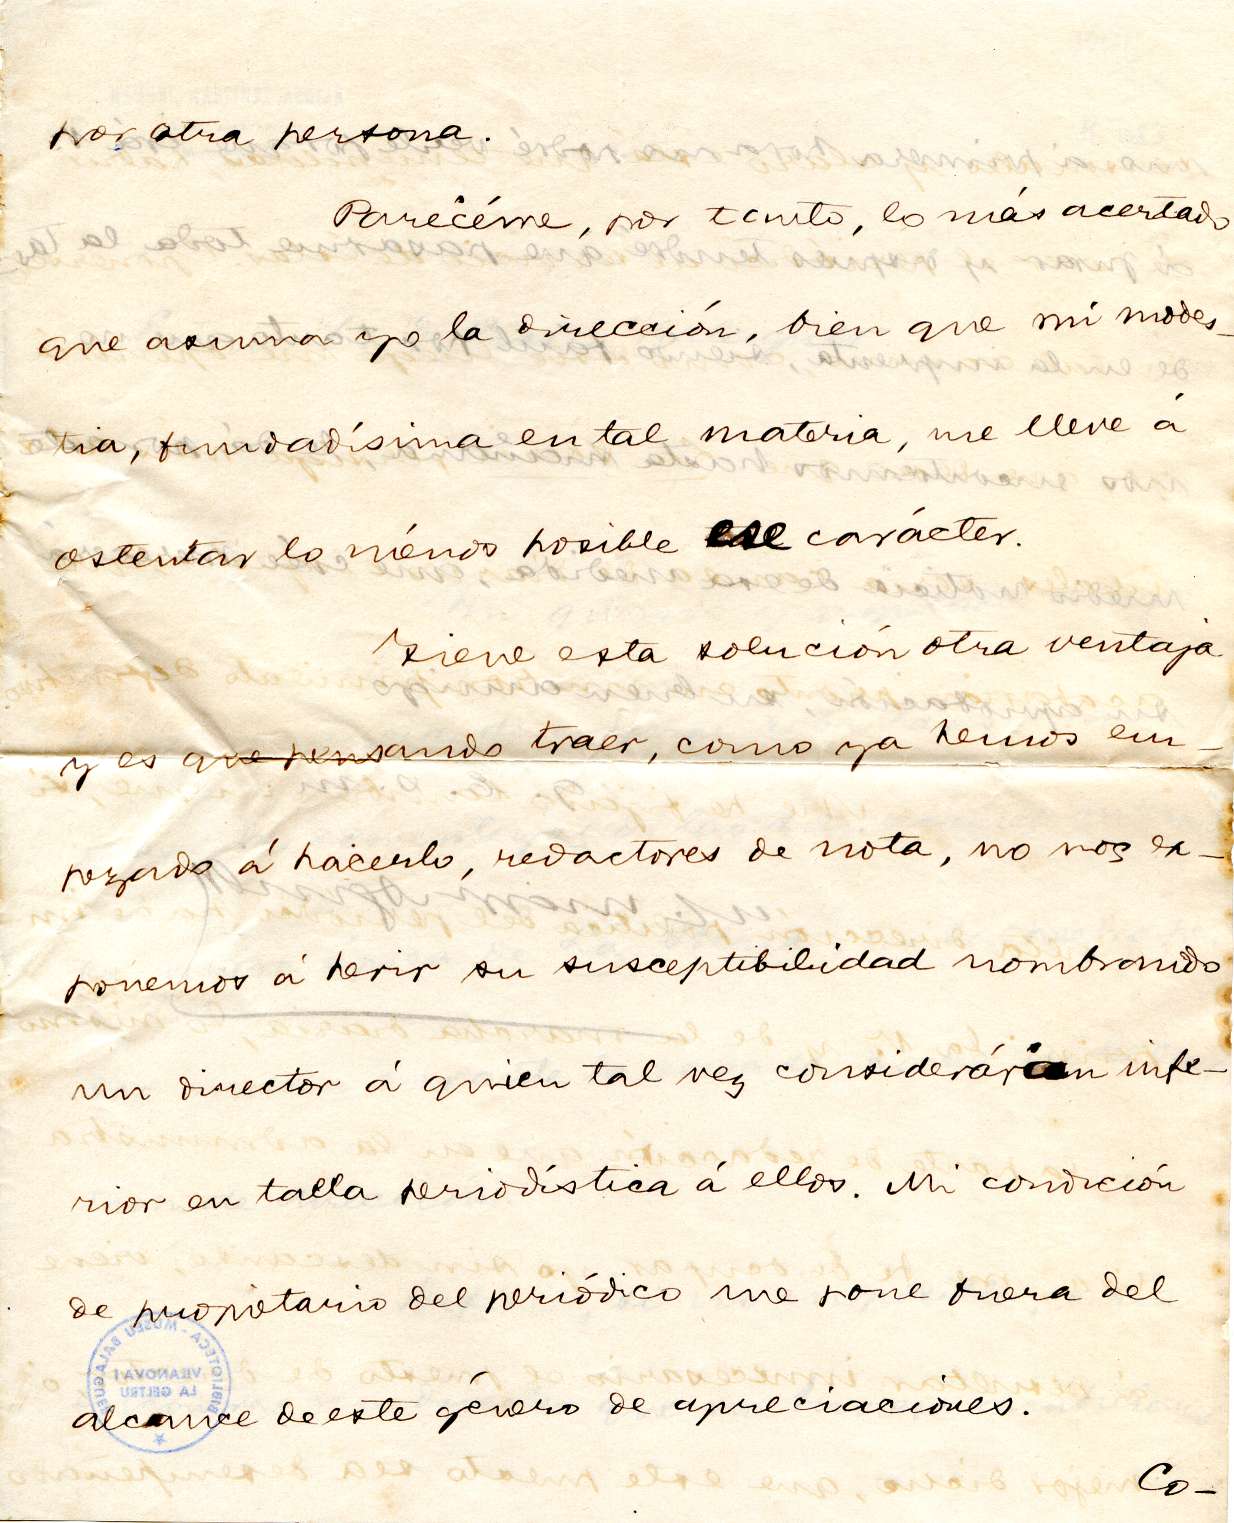 por otra persona.
Paréceme, por tanto, lo más acertado
que asuma yo la dirección, bien que mi modes-
tia, fundadísima en tal materia, me lleve á
ostentar lo ménos posible ese carácter.
Tiene esta solución otra ventaja
y es que pensando traer, como ya hemos em-
pezado á hacerlo, redactores de nota, no nos ex-
ponemos á herir su susceptibilidad nombrando
un director á quien tal vez considerárian infe-
rior en talla periodística á ellos. Mi condición
de propietario del periódico me pone fuera del
alcance de este género de apreciaciones.
Co-
BIBLIOTECA - MUSEU BALAGUER
VILANOVA I
LA GELTRÚ